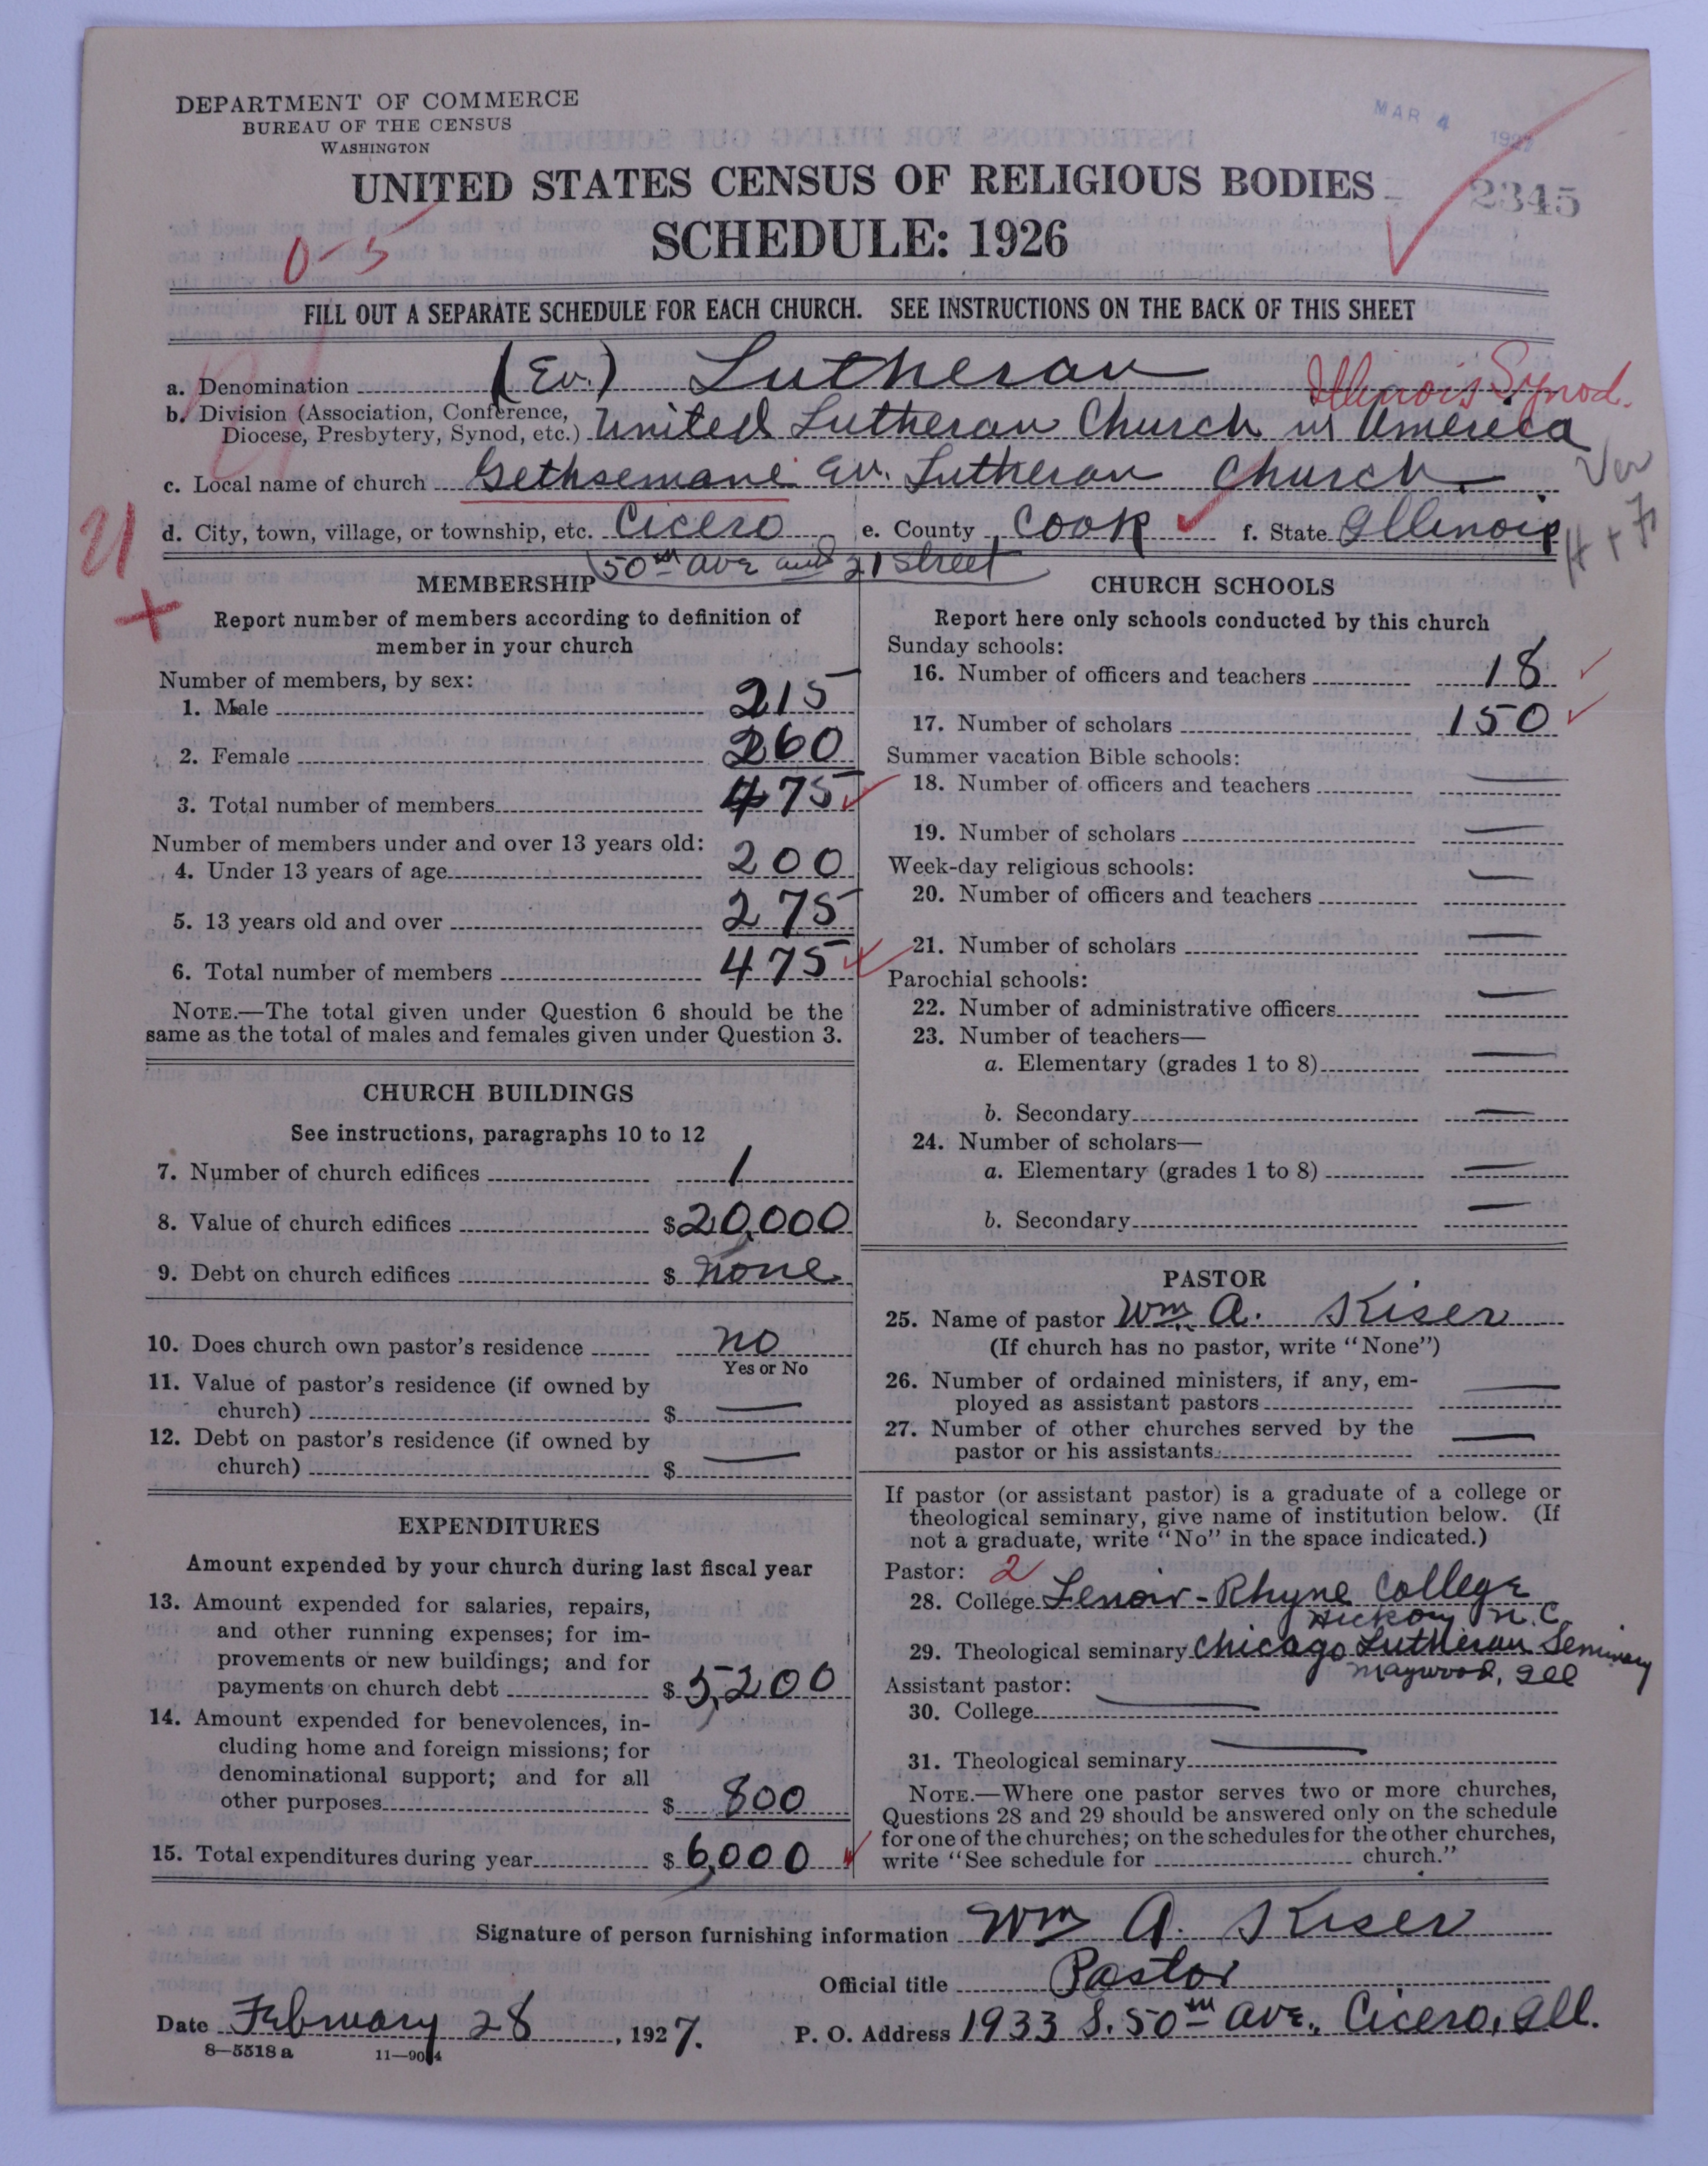 DEPARTMENT OF COMMERCE
BUREAU OF THE CENSUS
WASHINGTON
MAR 4 1927
UNITED STATES CENSUS OF RELIGIOUS BODIES
2345
SCHEDULE: 1926
0-5
FILL OUT A SEPARATE SCHEDULE FOR EACH CHURCH. SEE INSTRUCTIONS ON THE BACK OF THIS SHEET
a. Denomination (Ev.) Lutheran
Illinois Synod.
b. Division (Association, Conference, Diocese, Presbytery, Synod, etc.) United Lutheran Church in America
c. Local name of church Gethsemane Ev. Lutheran Church
Ver
d. City, town, village, or township, etc. Cicero e. County Cook f. State Illinois
50th Ave and 21 Street
MEMBERSHIP
Report number of members according to definition of
member in your church
Number of members, by sex:
1. Male 215
2. Female 260
3. Total number of members 475
Number of members under and over 13 years old:
4. Under 13 years of age 200
5. 13 years old and over 275
6. Total number of members 475
NOTE.—The total given under Question 6 should be the
same as the total of males and females given under Question 3.
CHURCH BUILDINGS
See instructions, paragraphs 10 to 12
7. Number of church edifices 1
8. Value of church edifices $20,000
9. Debt on church edifices $ none
10. Does church own pastor's residence no
Yes or No
11. Value of pastor's residence (if owned by
church) $ —
12. Debt on pastor's residence (if owned by
church) $ —
EXPENDITURES
Amount expended by your church during last fiscal year
13. Amount expended for salaries, repairs,
and other running expenses; for im-
provements or new buildings; and for
payments on church debt $5,200
14. Amount expended for benevolences, in-
cluding home and foreign missions; for
denominational support; and for all
other purposes $ 800
15. Total expenditures during year $6,000
CHURCH SCHOOLS
Report here only schools conducted by this church
Sunday schools:
16. Number of officers and teachers 18
17. Number of scholars 150
Summer vacation Bible schools:
18. Number of officers and teachers —
19. Number of scholars —
Week-day religious schools:
20. Number of officers and teachers —
21. Number of scholars —
Parochial schools:
22. Number of administrative officers —
23. Number of teachers—
a. Elementary (grades 1 to 8) —
b. Secondary —
24. Number of scholars—
a. Elementary (grades 1 to 8) —
b. Secondary —
PASTOR
25. Name of pastor Wm. A. Kiser
(If church has no pastor, write "None")
26. Number of ordained ministers, if any, em-
ployed as assistant pastors —
27. Number of other churches served by the
pastor or his assistants —
If pastor (or assistant pastor) is a graduate of a college or
theological seminary, give name of institution below. (If
not a graduate, write "No" in the space indicated.)
Pastor: 2
28. College Lenoir-Rhyne College
Hickory N.C.
29. Theological seminary Chicago Lutheran Seminary
Maywood, Ill
Assistant pastor:
30. College —
31. Theological seminary —
NOTE.—Where one pastor serves two or more churches,
Questions 28 and 29 should be answered only on the schedule
for one of the churches; on the schedules for the other churches,
write "See schedule for church."
Signature of person furnishing information Wm A. Kiser
Official title Pastor
Date February 28, 1927. P. O. Address 1933 S. 50th Ave., Cicero, Ill.
8—5518 a 11—9034